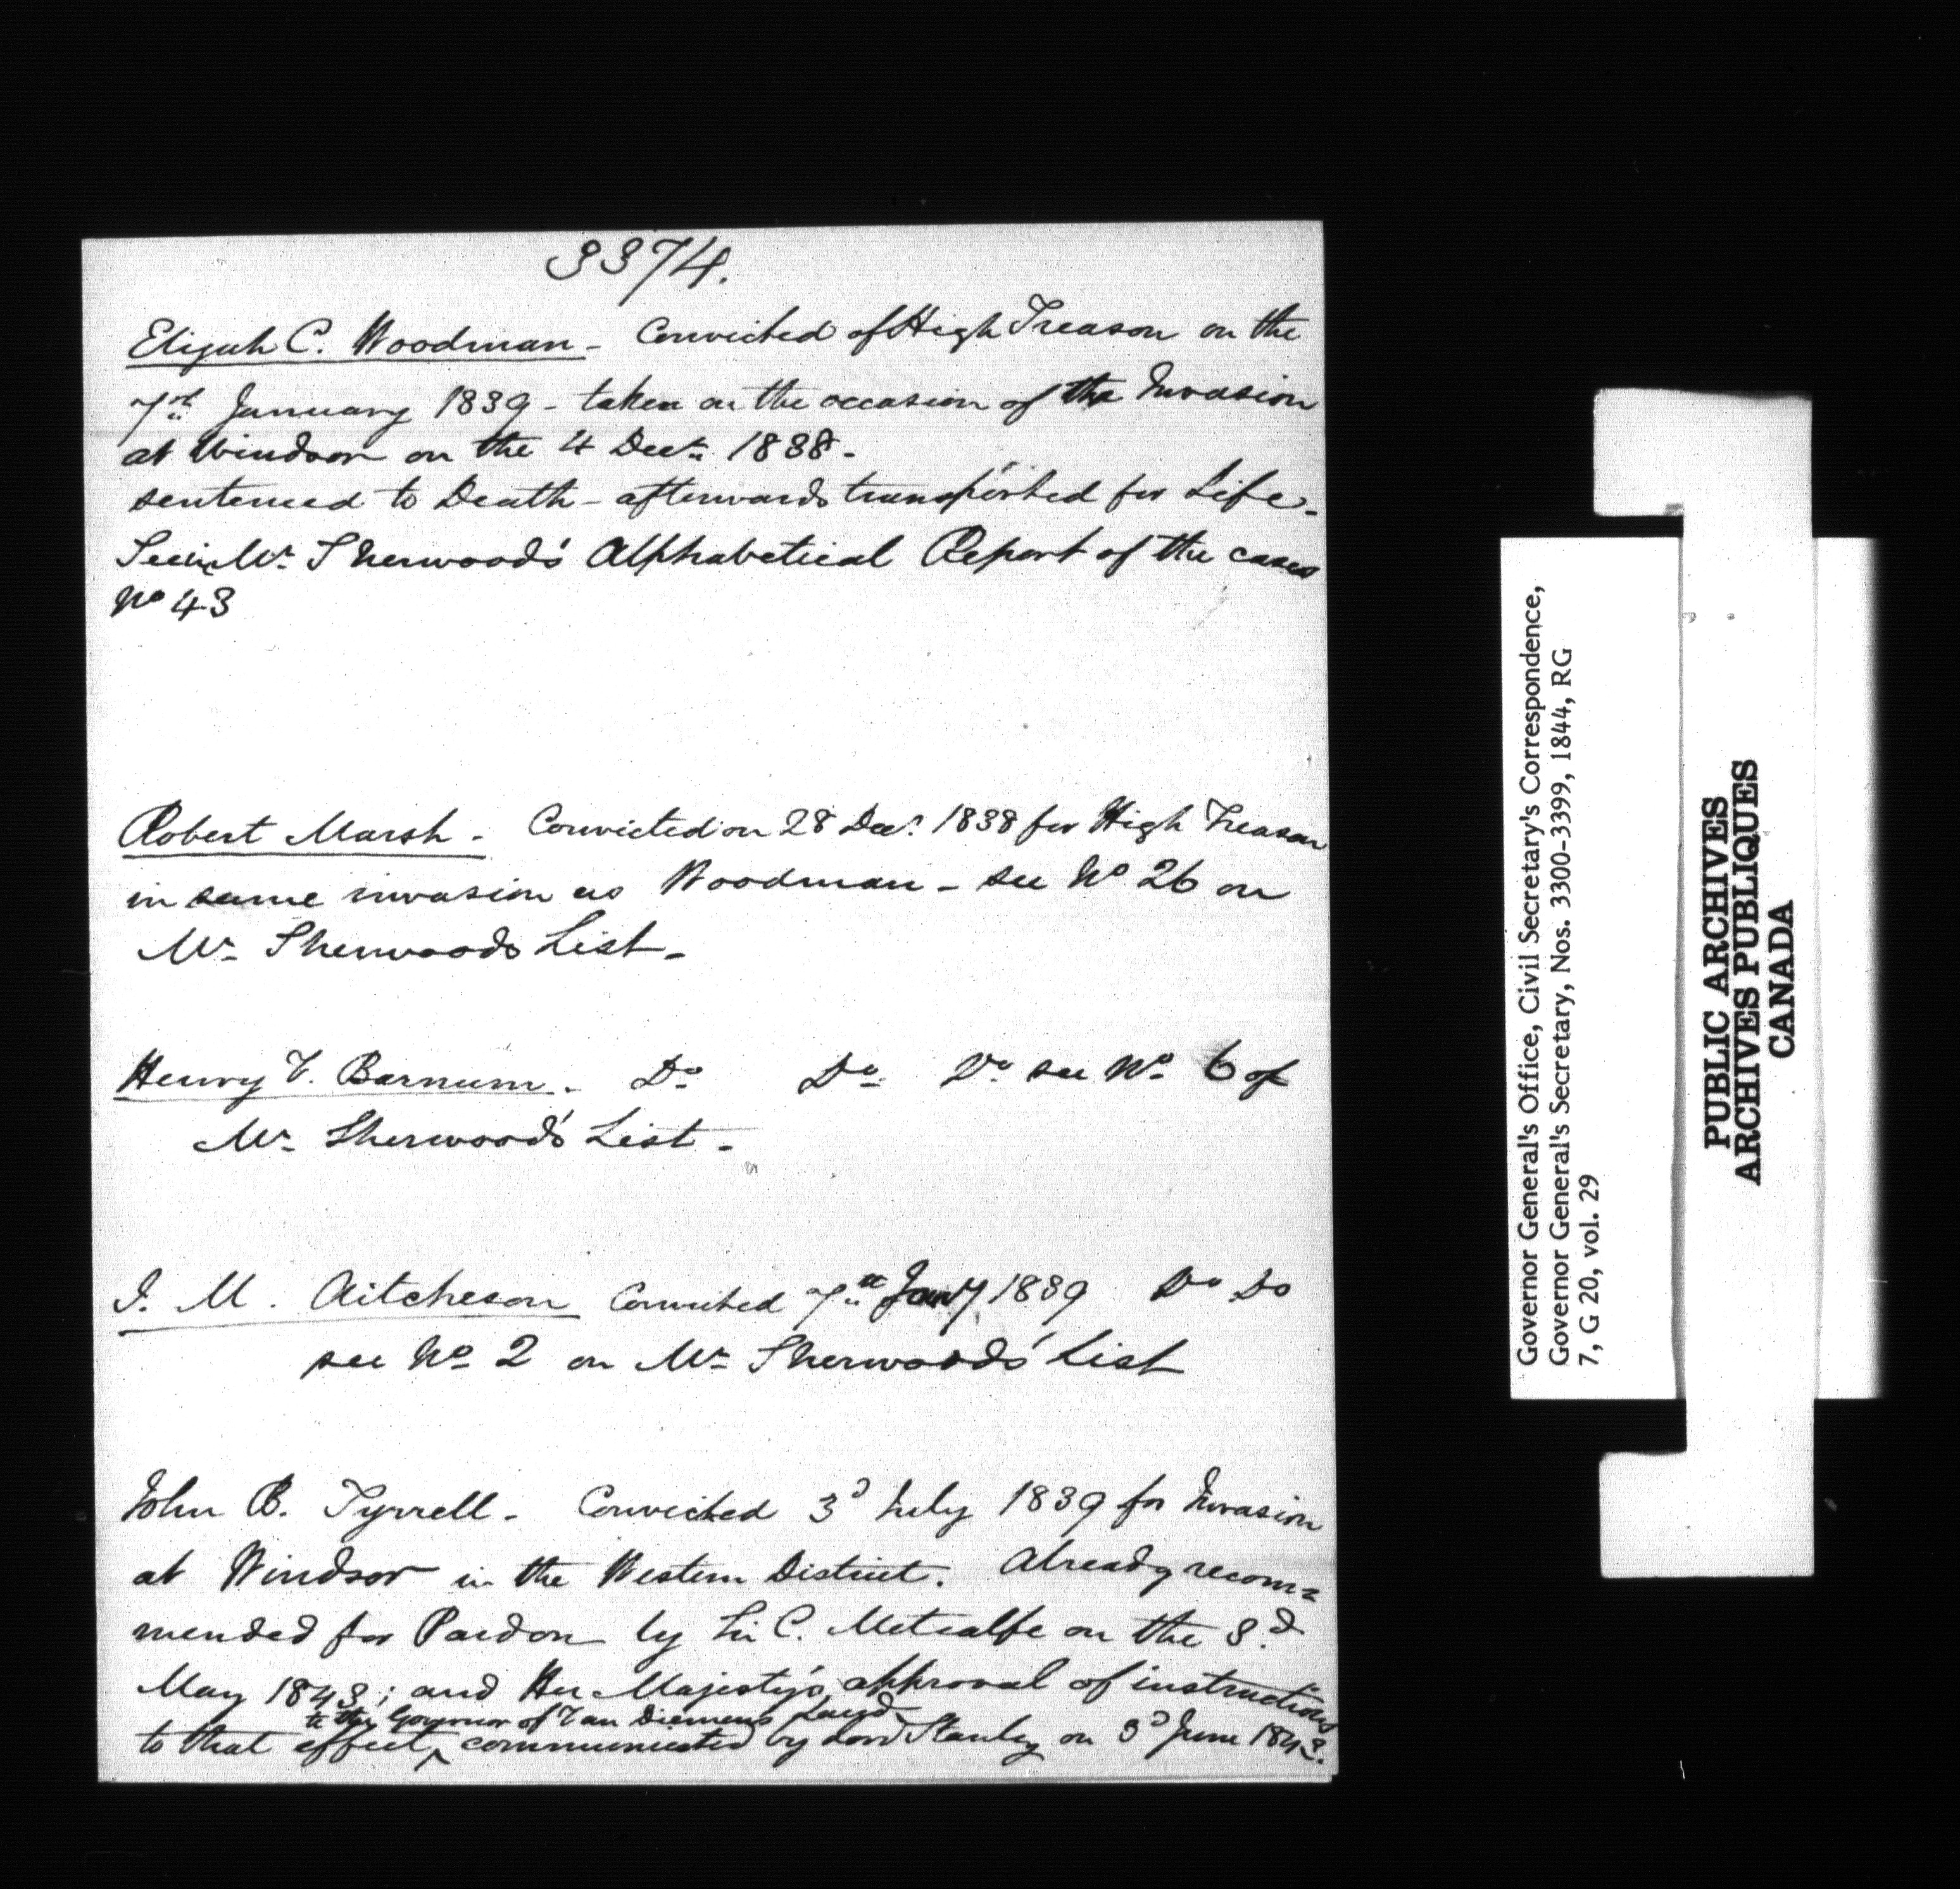 3374.
Elijah C. Woodman - Convicted of High Treason on the
7th January 1839 - taken on the occasion of the Invasion
at Windsor on the 4 Decr. 1838 -
sentenced to Death - afterwards transported for Life -
See in Mr. Sherwood's Alphabetical Report of the cases
No 43
Robert Marsh - Convicted on 28 Decr. 1838 for High Treason
in same invasion as Woodman - see No 26 on
Mr. Sherwoods List -
Henry V. Barnum - Do Do Do see No 6 of
Mr. Sherwood's List -
J. M. Aitcheson Convicted 7th Jany 1839 Do Do
see No 2 on Mr. Sherwood's List
John B. Tyrrell - Convicted 3d July 1839 for Invasion
at Windsor in the Western District. Already recom=
mended for Pardon by Sir C. Metcalfe on the 3d
May 1843; and Her Majesty's approval of instructions
to the Governor of Van Diemens Land
to that effect, communicated by Lord Stanley on 3d June 1843.
Governor General's Office, Civil Secretary's Correspondence,
Governor General's Secretary, Nos. 3300-3399, 1844, RG
7, G 20, vol. 29
PUBLIC ARCHIVES
ARCHIVES PUBLIQUES
CANADA